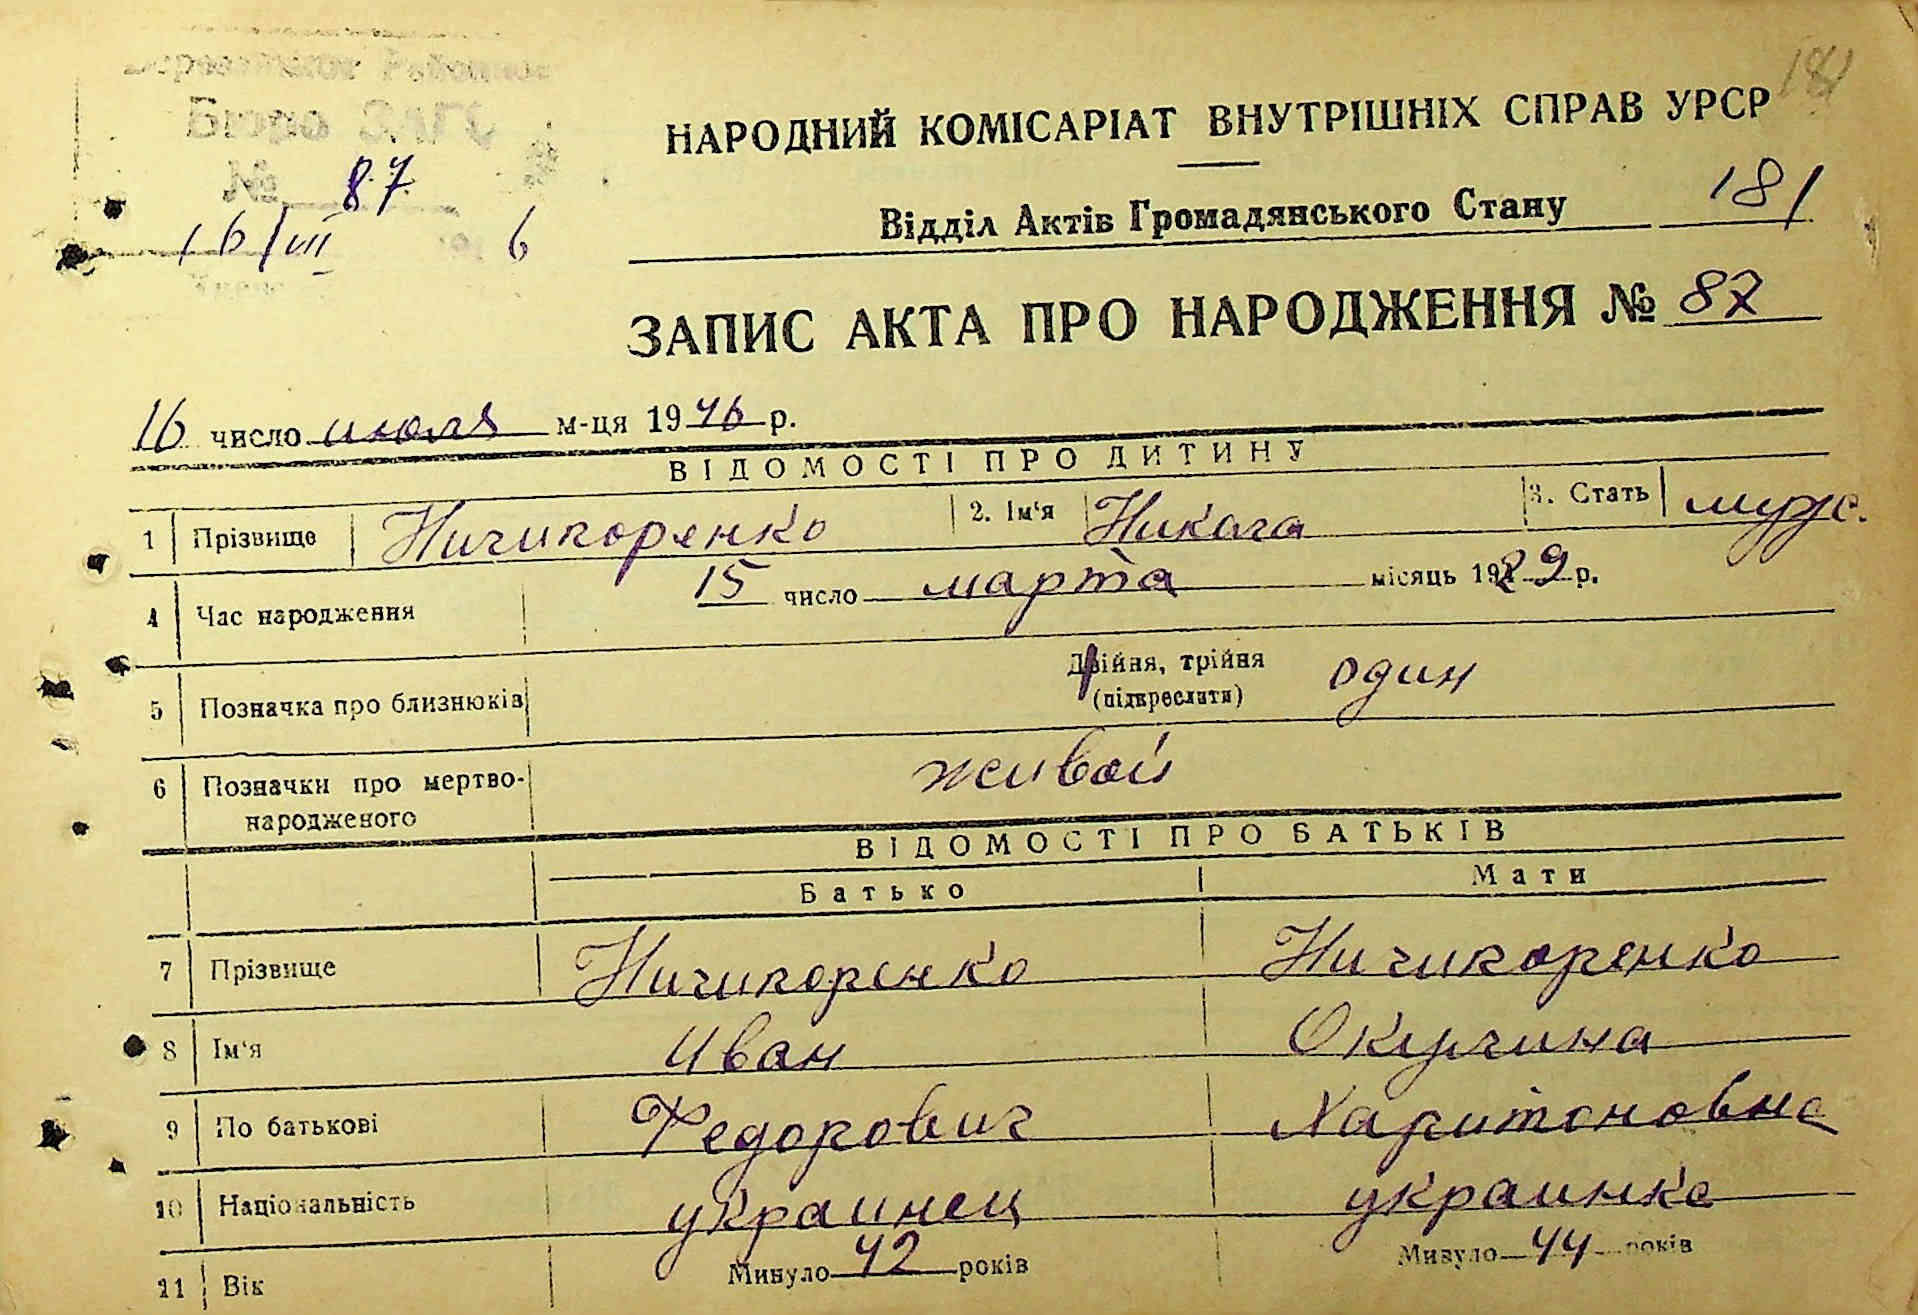 181
Бюро ЗАГС
№ 87
16/VII 6
НАРОДНИЙ КОМІСАРІАТ ВНУТРІШНІХ СПРАВ УРСР
Відділ Актів Громадянського Стану 181
ЗАПИС АКТА ПРО НАРОДЖЕННЯ № 87
16 число июля м-ця 1946 р.
ВІДОМОСТІ ПРО ДИТИНУ
1 Прізвище Ничипоренко 2. Ім'я Никола 3. Стать муж.
4 Час народження 15 число марта місяць 1929 р.
5 Позначка про близнюків Двійня, трійня (підкреслити) один
6 Позначки про мертво-
народженого живой
ВІДОМОСТІ ПРО БАТЬКІВ
Батько Мати
7 Прізвище Ничипоренко Ничипоренко
8 Ім'я Иван
9 По батькові Федорович Харитоновна
10 Національність украинец украинка
11 Вік Минуло 42 років Минуло 44 років